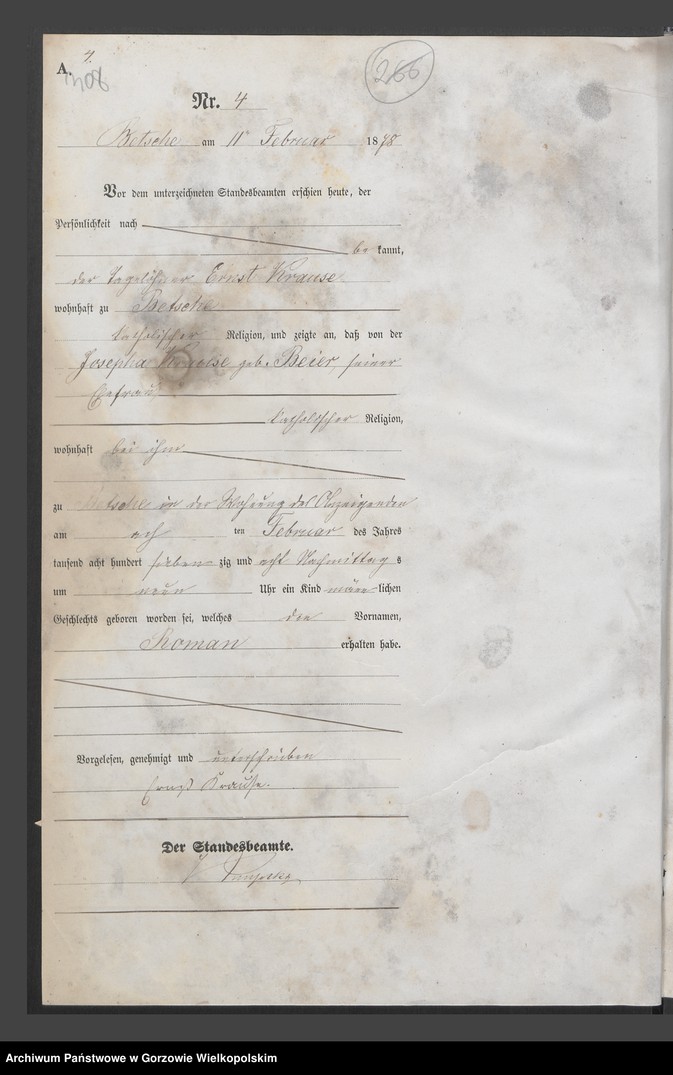 4.
A.
266
Nr. 4
Betsche am 11 Februar 1878
Vor dem unterzeichneten Standesbeamten erschien heute, der
Persönlichkeit nach
be kannt,
der Tagelöhner Ernst Krause
wohnhaft zu Betsche
katholischer Religion, und zeigte an, daß von der
Josepha Krause geb. Beier, seiner
Ehefrau
katholischer Religion,
wohnhaft bei ihm
zu Betsche in der Wohnung des Anzeigenden
am ach ten Februar des Jahres
tausend acht hundert sieben zig und acht Nachmittag s
um neun Uhr ein Kind männ lichen
Geschlechts geboren worden sei, welches den Vornamen,
Roman erhalten habe.
Vorgelesen, genehmigt und unterschrieben
Ernst Krause.
Der Standesbeamte.
Archiwum Państwowe w Gorzowie Wielkopolskim